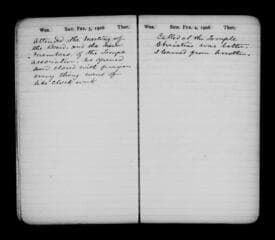 Wea. Sat. Feb. 3, 1906 Ther.
Attended the meeting of
the Board, and the
members of the Temple
association. We opened
and closed with prayer
every thing went off
like Clock work
Wea. Sun. Feb. 4, 1906 Ther.
Called at the Temple
Christine was better.
I learned from brother